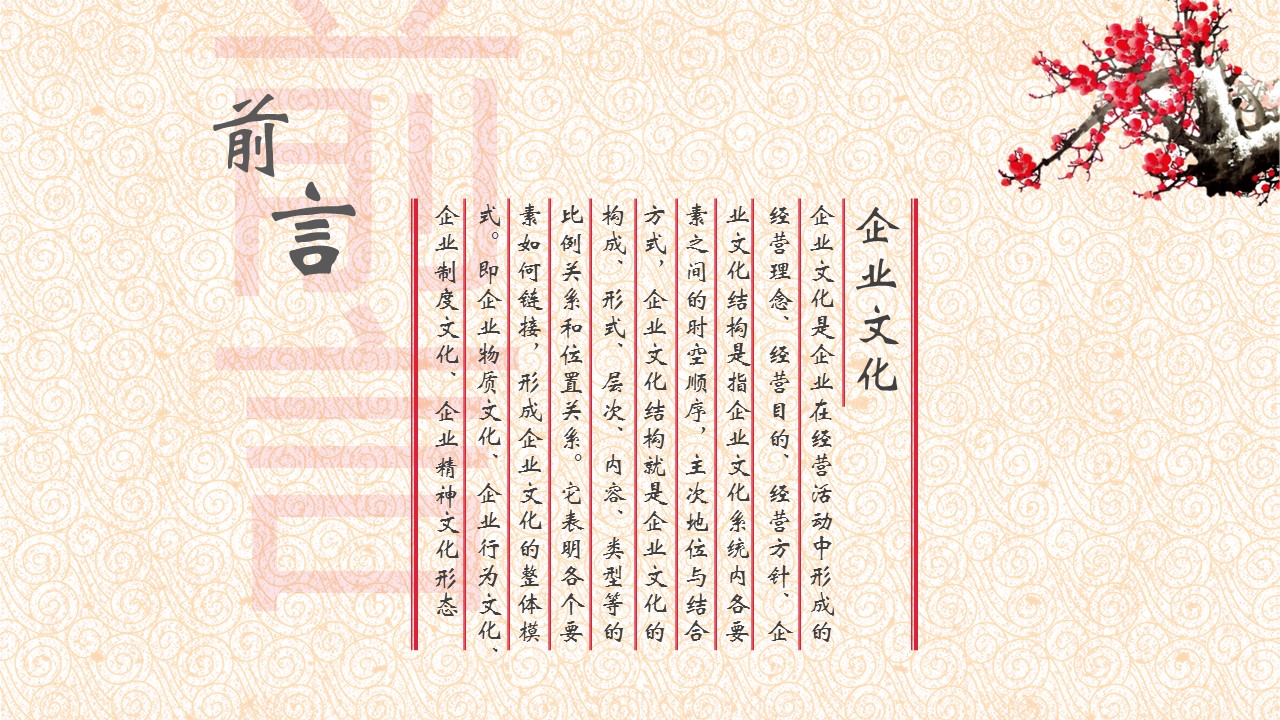 前言
企业文化
企业文化是企业在经营活动中形成的
经营理念、经营目的、经营方针、企
业文化结构是指企业文化系统内各要
素之间的时空顺序，主次地位与结合
方式，企业文化结构就是企业文化的
构成、形式、层次、内容、类型等的
比例关系和位置关系。它表明各个要
素如何链接，形成企业文化的整体模
式。即企业物质文化、企业行为文化、
企业制度文化、企业精神文化形态
前言